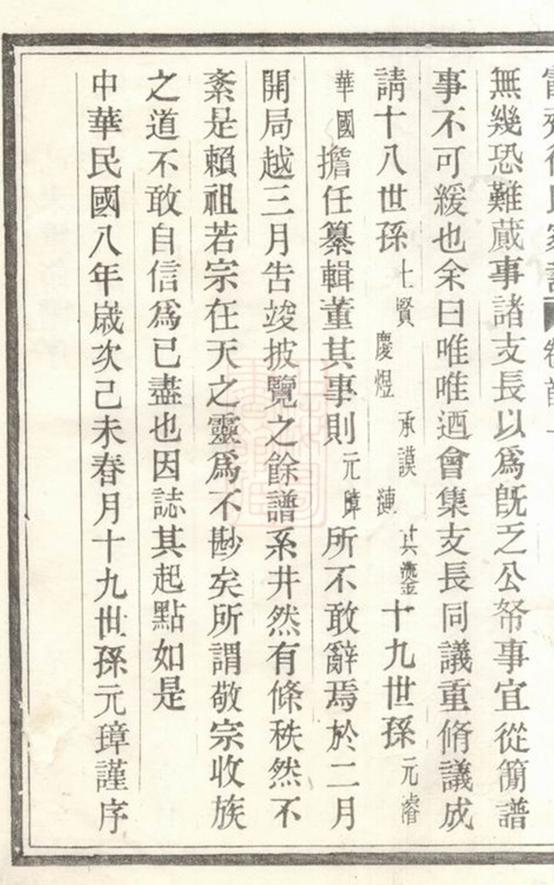 無幾恐難蕆事諸支長以爲旣乏公帑事宜從簡譜
事不可緩也余曰唯唯迺會集支長同議重脩議成
請十八世孫士賢慶煜承謨漣其鎏十九世孫元濬
華國擔任纂輯董其事則元暲所不敢辭焉於二月
開局越三月告竣披覽之餘譜系井然有條秩然不
紊是賴祖若宗在天之靈爲不尠矣所謂敬宗收族
之道不敢自信爲已盡也因誌其起點如是
中華民國八年歲次己未春月十九世孫元璋謹序